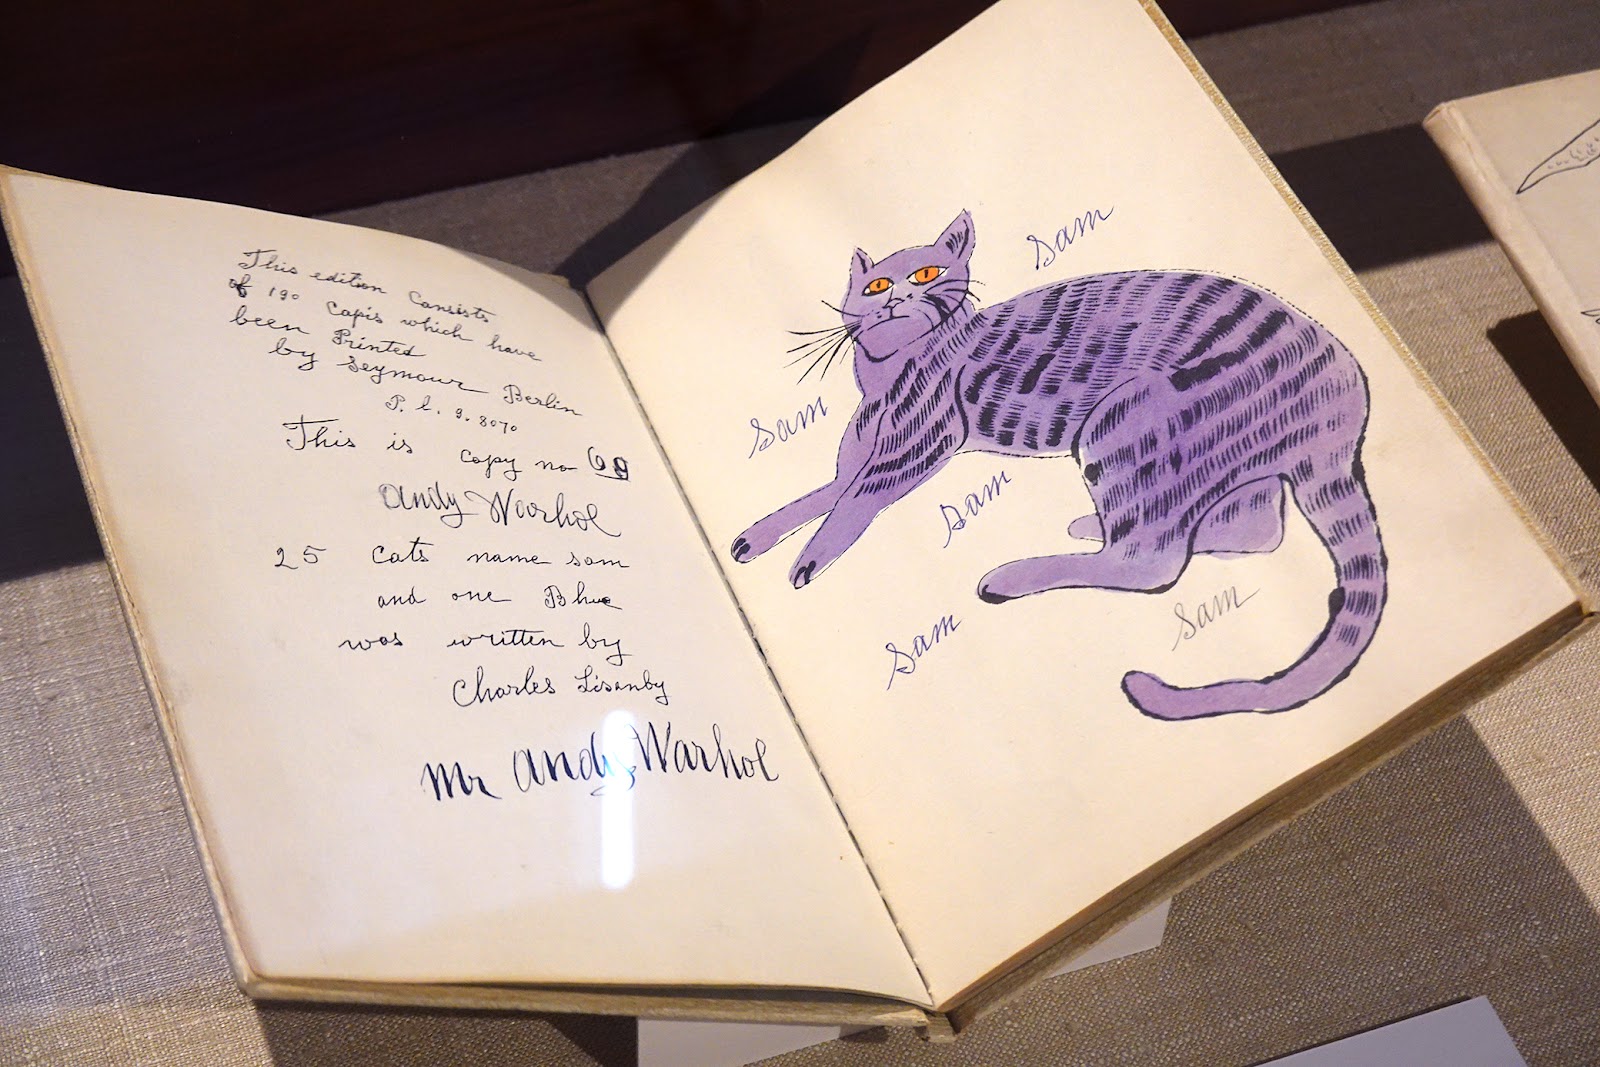 This edition consists
of 190 Capis which have
been Printed
by Seymour Berlin
P. l. 9. 8070
This is copy no 69
Andy Warhol
25 Cats name Sam
and one Blue
was written by
Charles Lisanby
Mr Andy Warhol
Sam
Sam
Sam
Sam
Sam